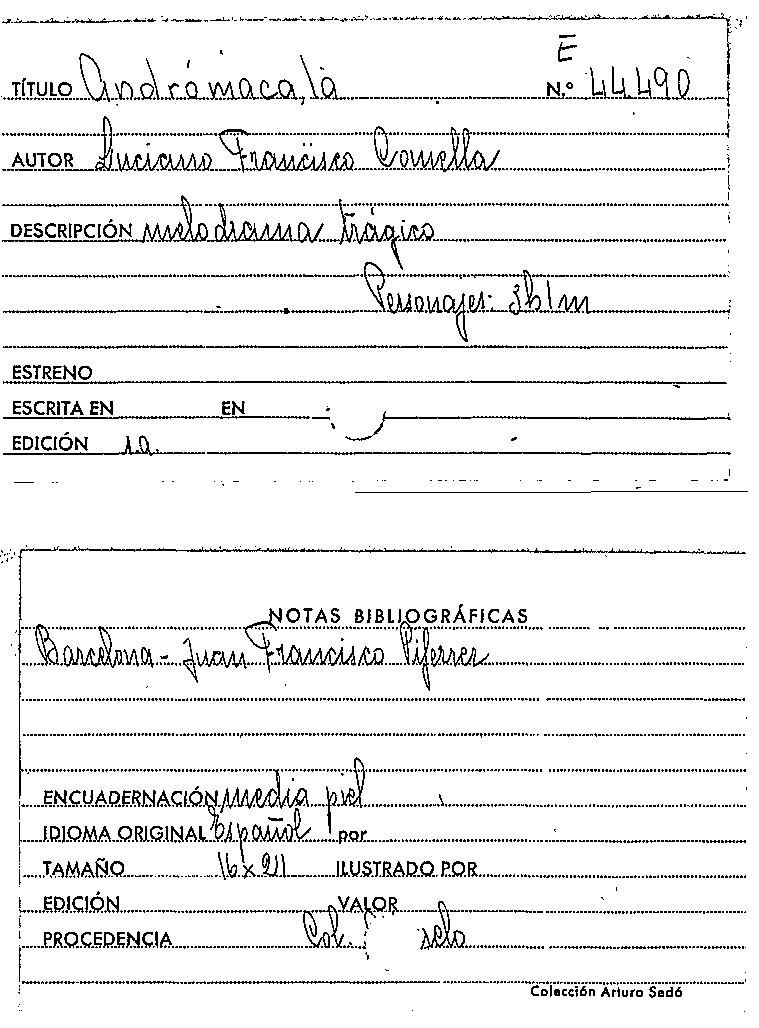 E
TÍTULO Andrómaca, la N.º 44490
AUTOR Luciano Francisco Comella
DESCRIPCIÓN melodrama trágico
Personajes: 3h1m
ESTRENO
ESCRITA EN EN
EDICIÓN s.a.
NOTAS BIBLIOGRÁFICAS
Barcelona - Juan Francisco Piferrer
ENCUADERNACIÓN media piel
IDIOMA ORIGINAL Español por
TAMAÑO 16 x 21 ILUSTRADO POR
EDICIÓN VALOR
PROCEDENCIA Col.
Colección Arturo Sedó